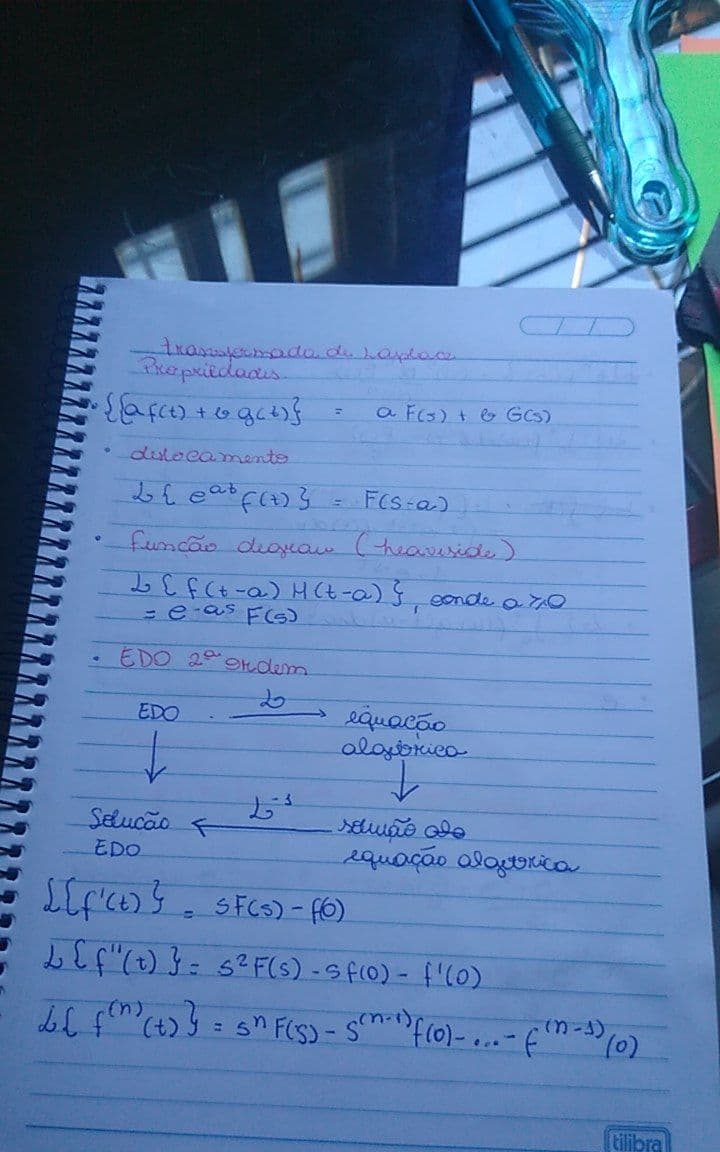 transformada de Laplace
Propriedades
• L{a f(t) + b g(t)} = a F(s) + b G(s)
• deslocamento
L{ e^at f(t) } = F(s-a)
• função degrau (heaviside)
L{ f(t-a) H(t-a) }, onde a ≥ 0
= e^-as F(s)
• EDO 2ª ordem
EDO → L equação
algébrica
↓ ↓
Solução ← L^-1 solução da
EDO equação algébrica
L{f'(t)} = sF(s) - f(0)
L{f''(t)} = s²F(s) - sf(0) - f'(0)
L{ f^(n)(t) } = s^n F(s) - s^(n-1) f(0) - ... - f^(n-1)(0)
tilibra